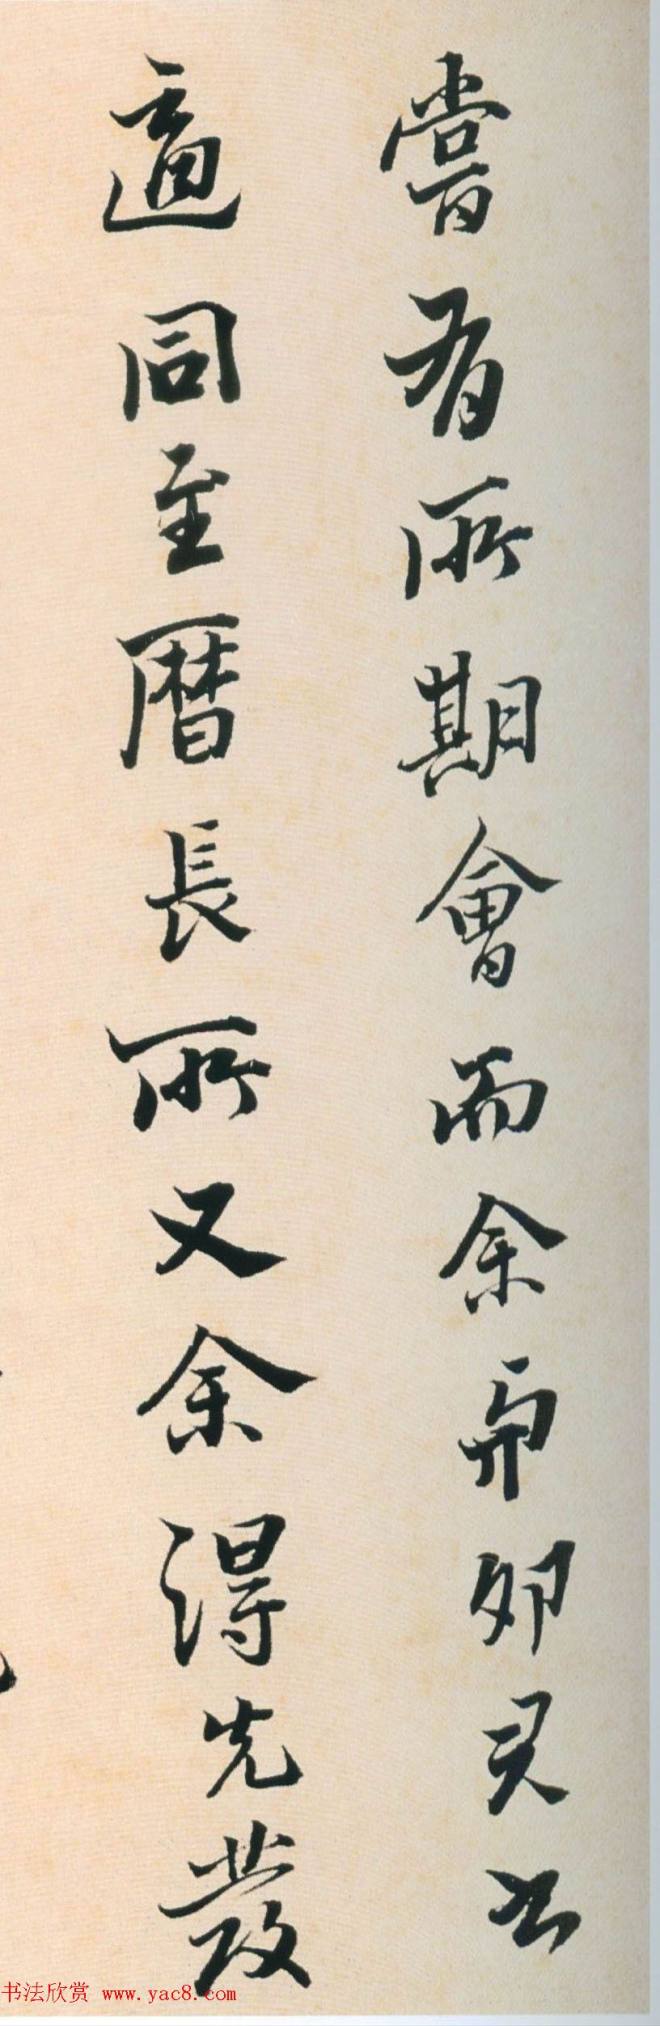 嘗有所期會而余卯
適同至曆長所又余得先發
书法欣赏 www.yac8.com